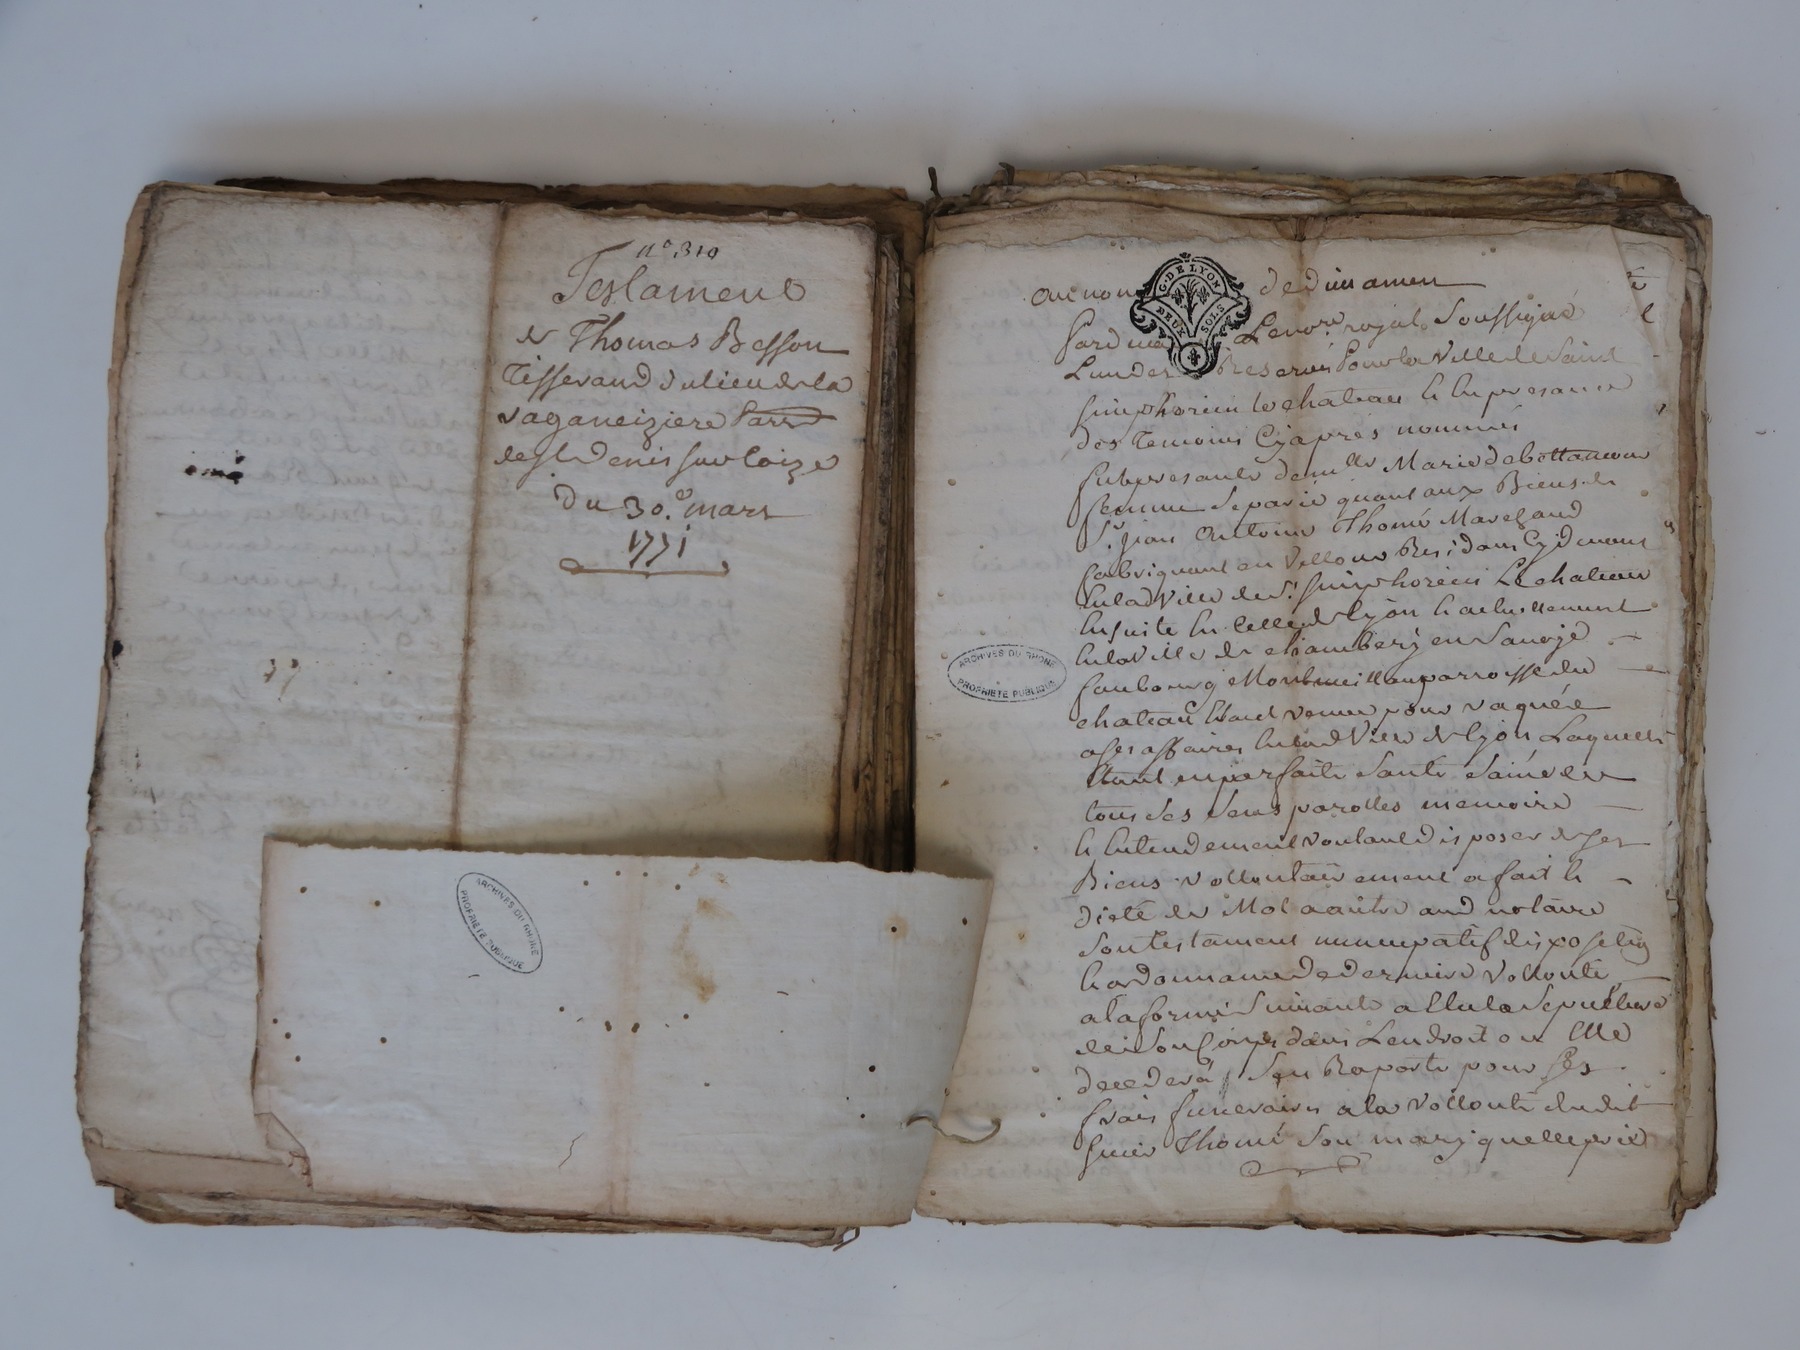 n.° 310
Testament
de Thomas Besson
Tisserand du lieu de la
vaganeiziere Parr
de St Denis sur Coize
Du 30.e mars
1771
ARCHIVES DU RHONE
PROPRIETE PUBLIQUE
G. DE LYON
DEUX SOLS
Au nom de Dieu amen
Pardevant Le no.re royal Soussigné
L'un des Reservés Pour la Ville de Saint
simphorien le chateau & En presance
des Temoins Cyaprés nommés
fut presante demlle Marie debottamour
femme Separée quant aux Biens de
Sr. jean Antoine Thomé Marchand
fabriquant en Vellour Residant Cydevant
En lad Ville de St. simphorien Le chateau
Ensuite En Celle de Lyon & actuellement
En la Ville de chambery en Savoye
faubourg Montmeillan parroisse du
chateau Etant venue pour vaquér
a ses affaires En lad Ville de Lyon Laquelle
Etant en parfaite Santé Saine de
tous Ses Sens parolles memoire
& Entendement voulant disposer de Ses
Biens vollontairement a fait &
dicté de Mot a autre aud notaire
Son testament nuncupatif disposition
& ordonnance de derniere vollonté
a la forme Suivante a Elu la Sepulture
de Son Corps dans L'endroit ou Elle
decedera, S'en Raporte pour Ses
frais funeraires a la vollonté dudit
sieur Thomé Son mary quelle prie
ARCHIVES DU RHONE
PROPRIETE PUBLIQUE